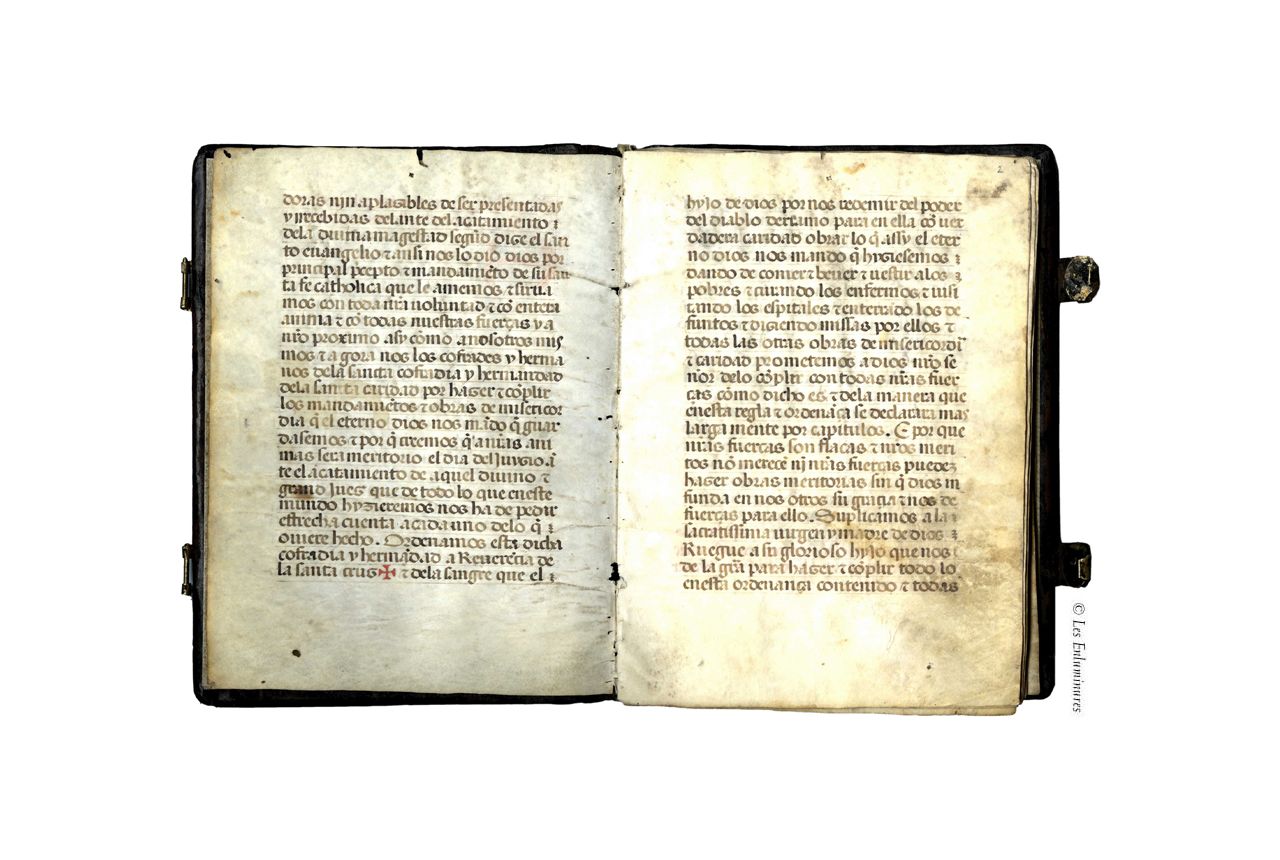 doras njn aplasibles de ser presentadas
y rrecebidas delante del acatamiento ꝛ
dela diuina magestad segũd dize el san
to euangelio ⁊ ansi nos lo dio dios por
principal p̱cepto ⁊ mandamiẽto de su san
ta fe catholica que le amemos ⁊ sirua
mos con toda nr̃a voluntad ⁊ cõ entera
anima ⁊ cõ todas nuestras fuerças y a
nr̃o proximo asy como a nosotros mis
mos ⁊ agora nos los cofrades y herma
nos dela sancta cofradia y hermandad
dela santa caridad por hazer ⁊ cõplir
los mandamiẽtos ⁊ obras de misericor
dia q̃ el eterno dios nos mãdo q̃ guar
dasemos ⁊ por q̃ creemos q̃ a nr̃as ani
mas sera meritorio el dia del juyzio ãn
te el acatamiento de aquel diuino ⁊
grand juez que de todo lo que eneste
mundo hyzieremos nos ha de pedir
estrecha cuenta a cada uno delo q̃ ꝛ
ouiere hecho. Ordenamos esta dicha
cofradia y hermãdad a Reuerẽcia de
la santa cruz✠ ⁊ dela sangre que el ꝛ
2
hyjo de dios por nos redemir del poder
del diablo derramo para en ella cõ uer
dadera caridad obrar lo q̃ assy el eter
no dios nos mando q̃ hyziesemos ꝛ
dando de comer ⁊ beuer ⁊ vestir a los ꝛ
pobres ⁊ curando los enfermos ⁊ uisi
tando los espitales ⁊ enterrado los de
funtos ⁊ diziendo missas por ellos ⁊
todas las otras obras de misericordiã
⁊ caridad prometemos a dios nr̃o se
ñor delo cõplir con todas nr̃as fuer
ças cõmo dicho es ⁊ dela manera que
enesta regla ⁊ ordenãça se declarara mas
larga mente por capitulos. E por que
nr̃as fuerças son flacas ⁊ nr̃os meri
tos nõ merecẽ nj nr̃as fuerças puedẽ
hazer obras meritorias sin q̃ dios in
funda en nos otros su gracia ⁊ nos de
fuerças para ello. Suplicamos a la ꝛ
sacratissima uirgen y madre de dios ꝛ
Ruegue a su glorioso hyjo que nos
de la gr̃a para hazer ⁊ cõplir todo lo
enesta ordenança contenido ⁊ todas
© Les Enluminures